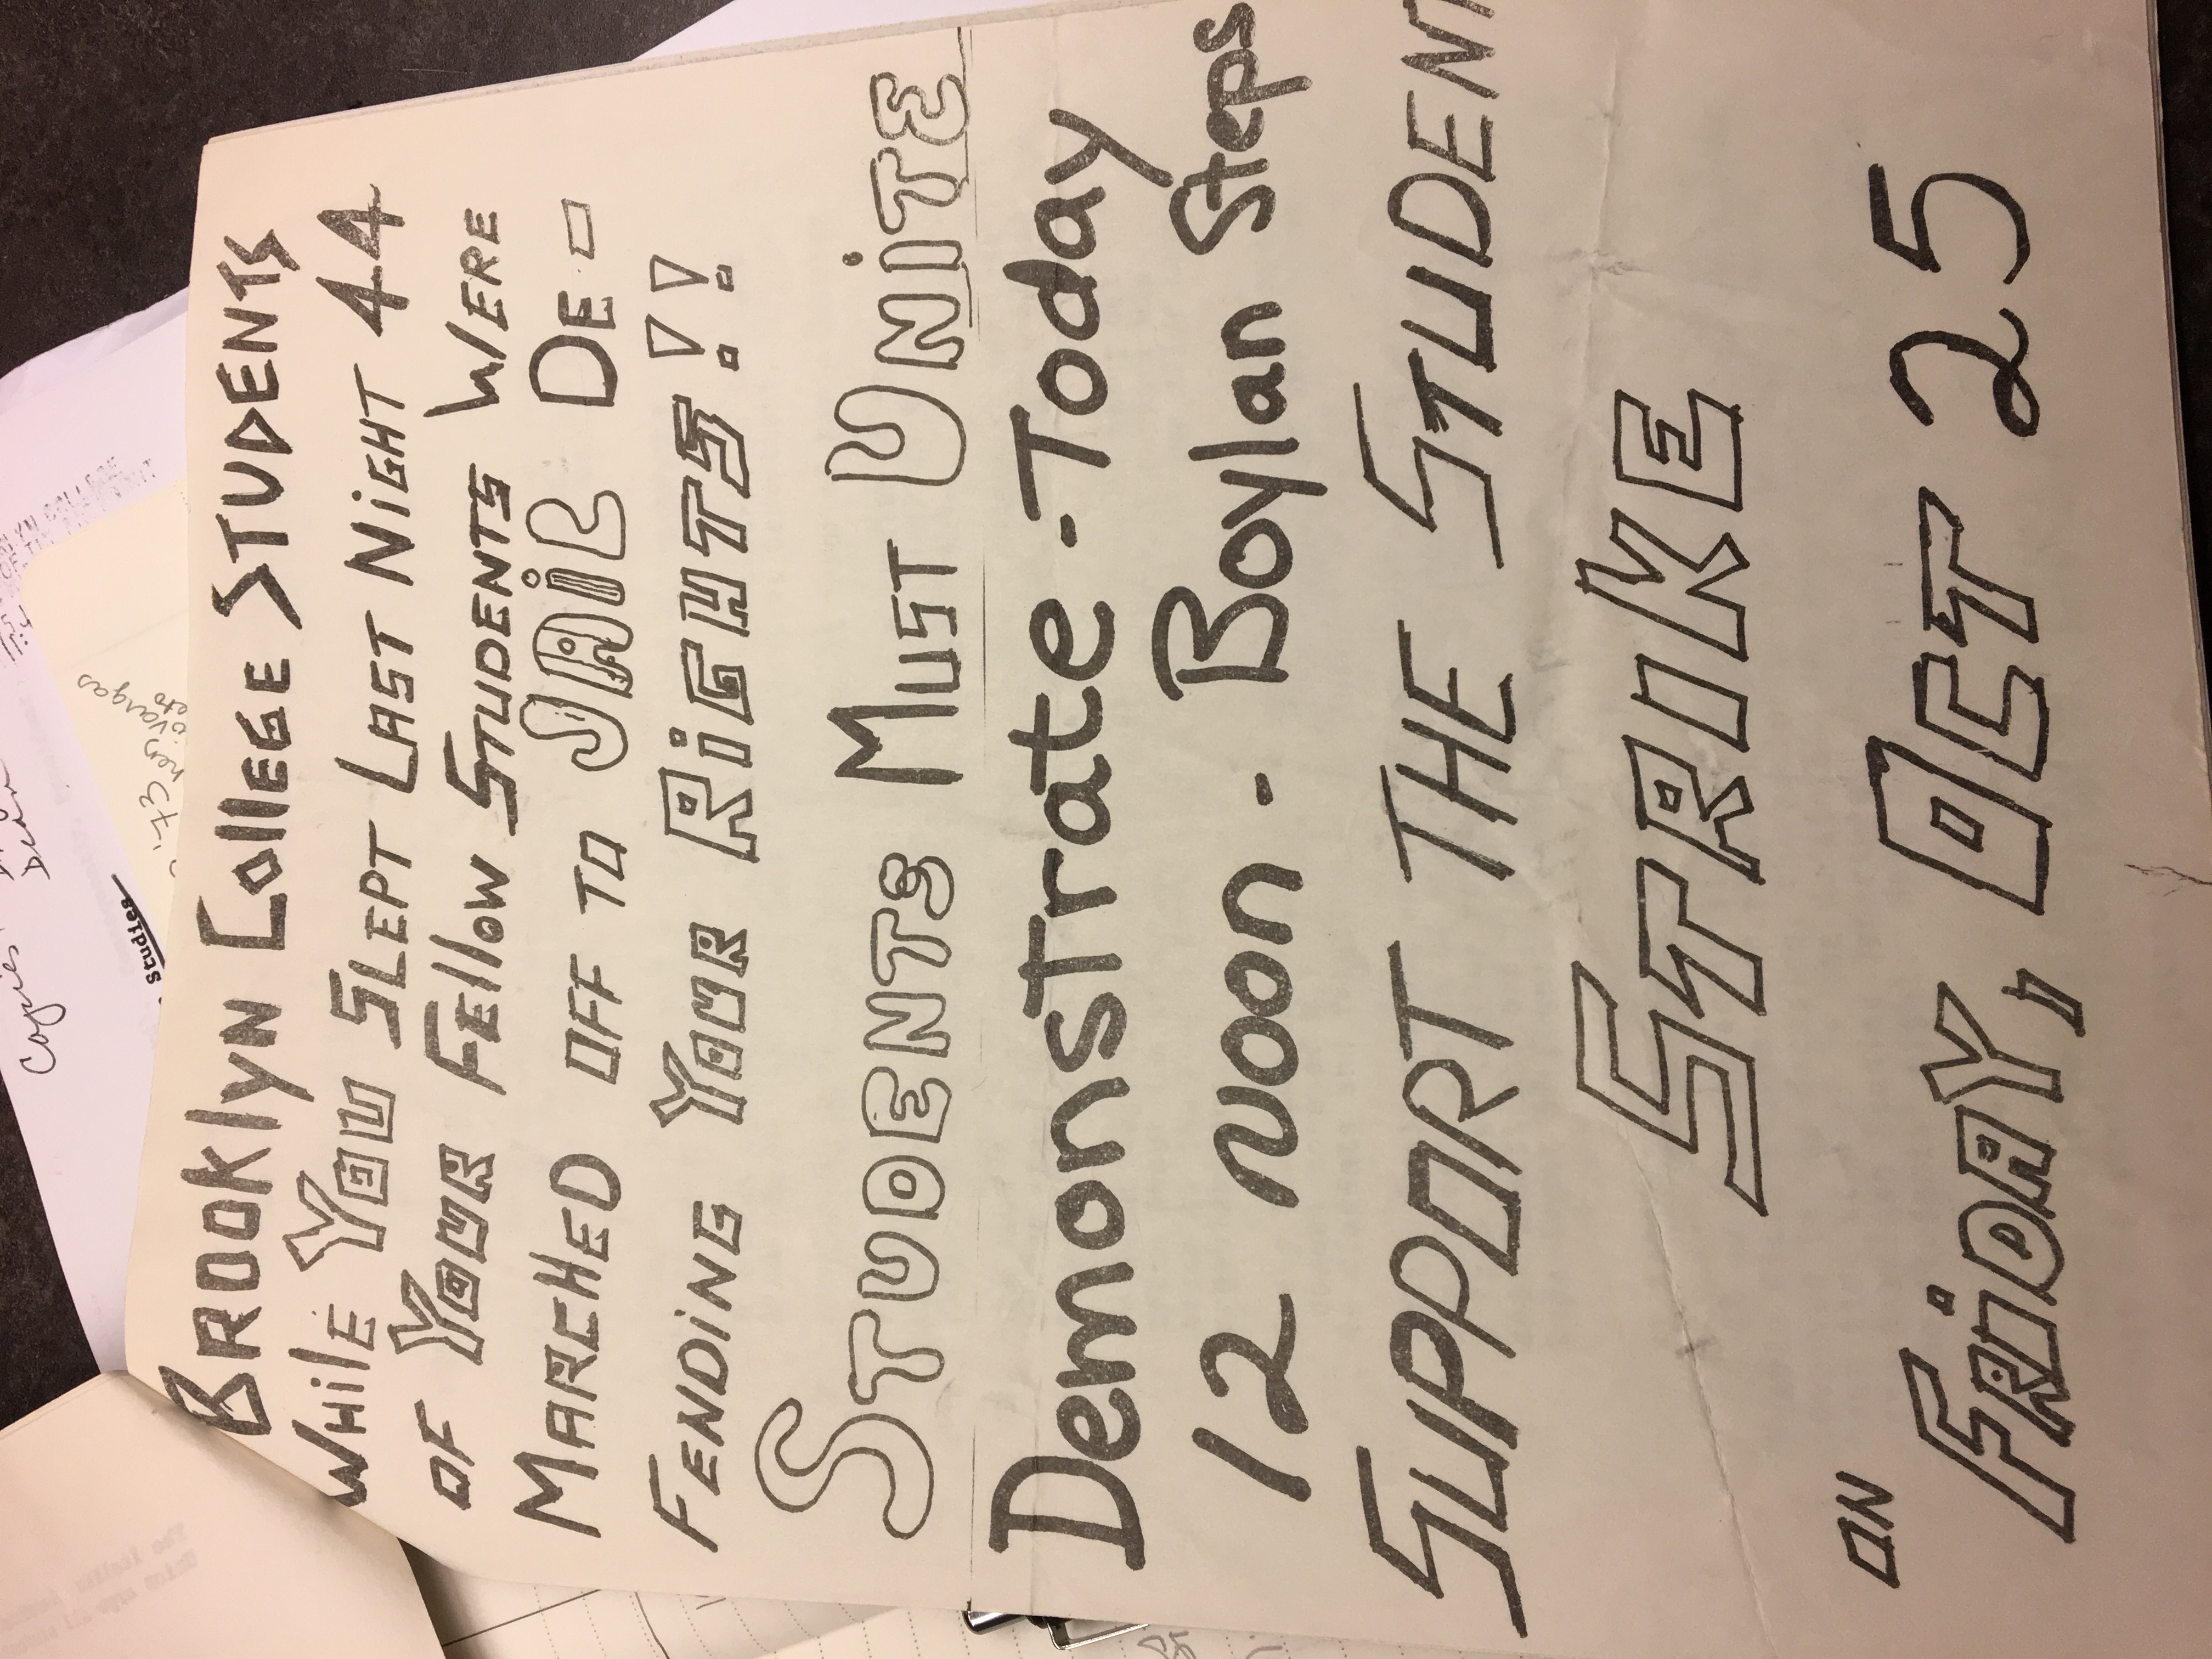 BROOKlYN COllEGE STUDENTS
WHilE YOU SLEPT LAST NiGHT 44
OF YOUR FEllOW STUDENTS WERE
MARCHED OFF TO JAiL DE-
FENDiNG YOUR RiGHTS!!
STUDENTS MUST UNiTE
DemonsTrate - Today
12 NOON - Boylan Steps
SUPPORT THE STUDENT
STRIKE
ON
FRiDAY, OCT 25
Copies
Dean
Studies
'73